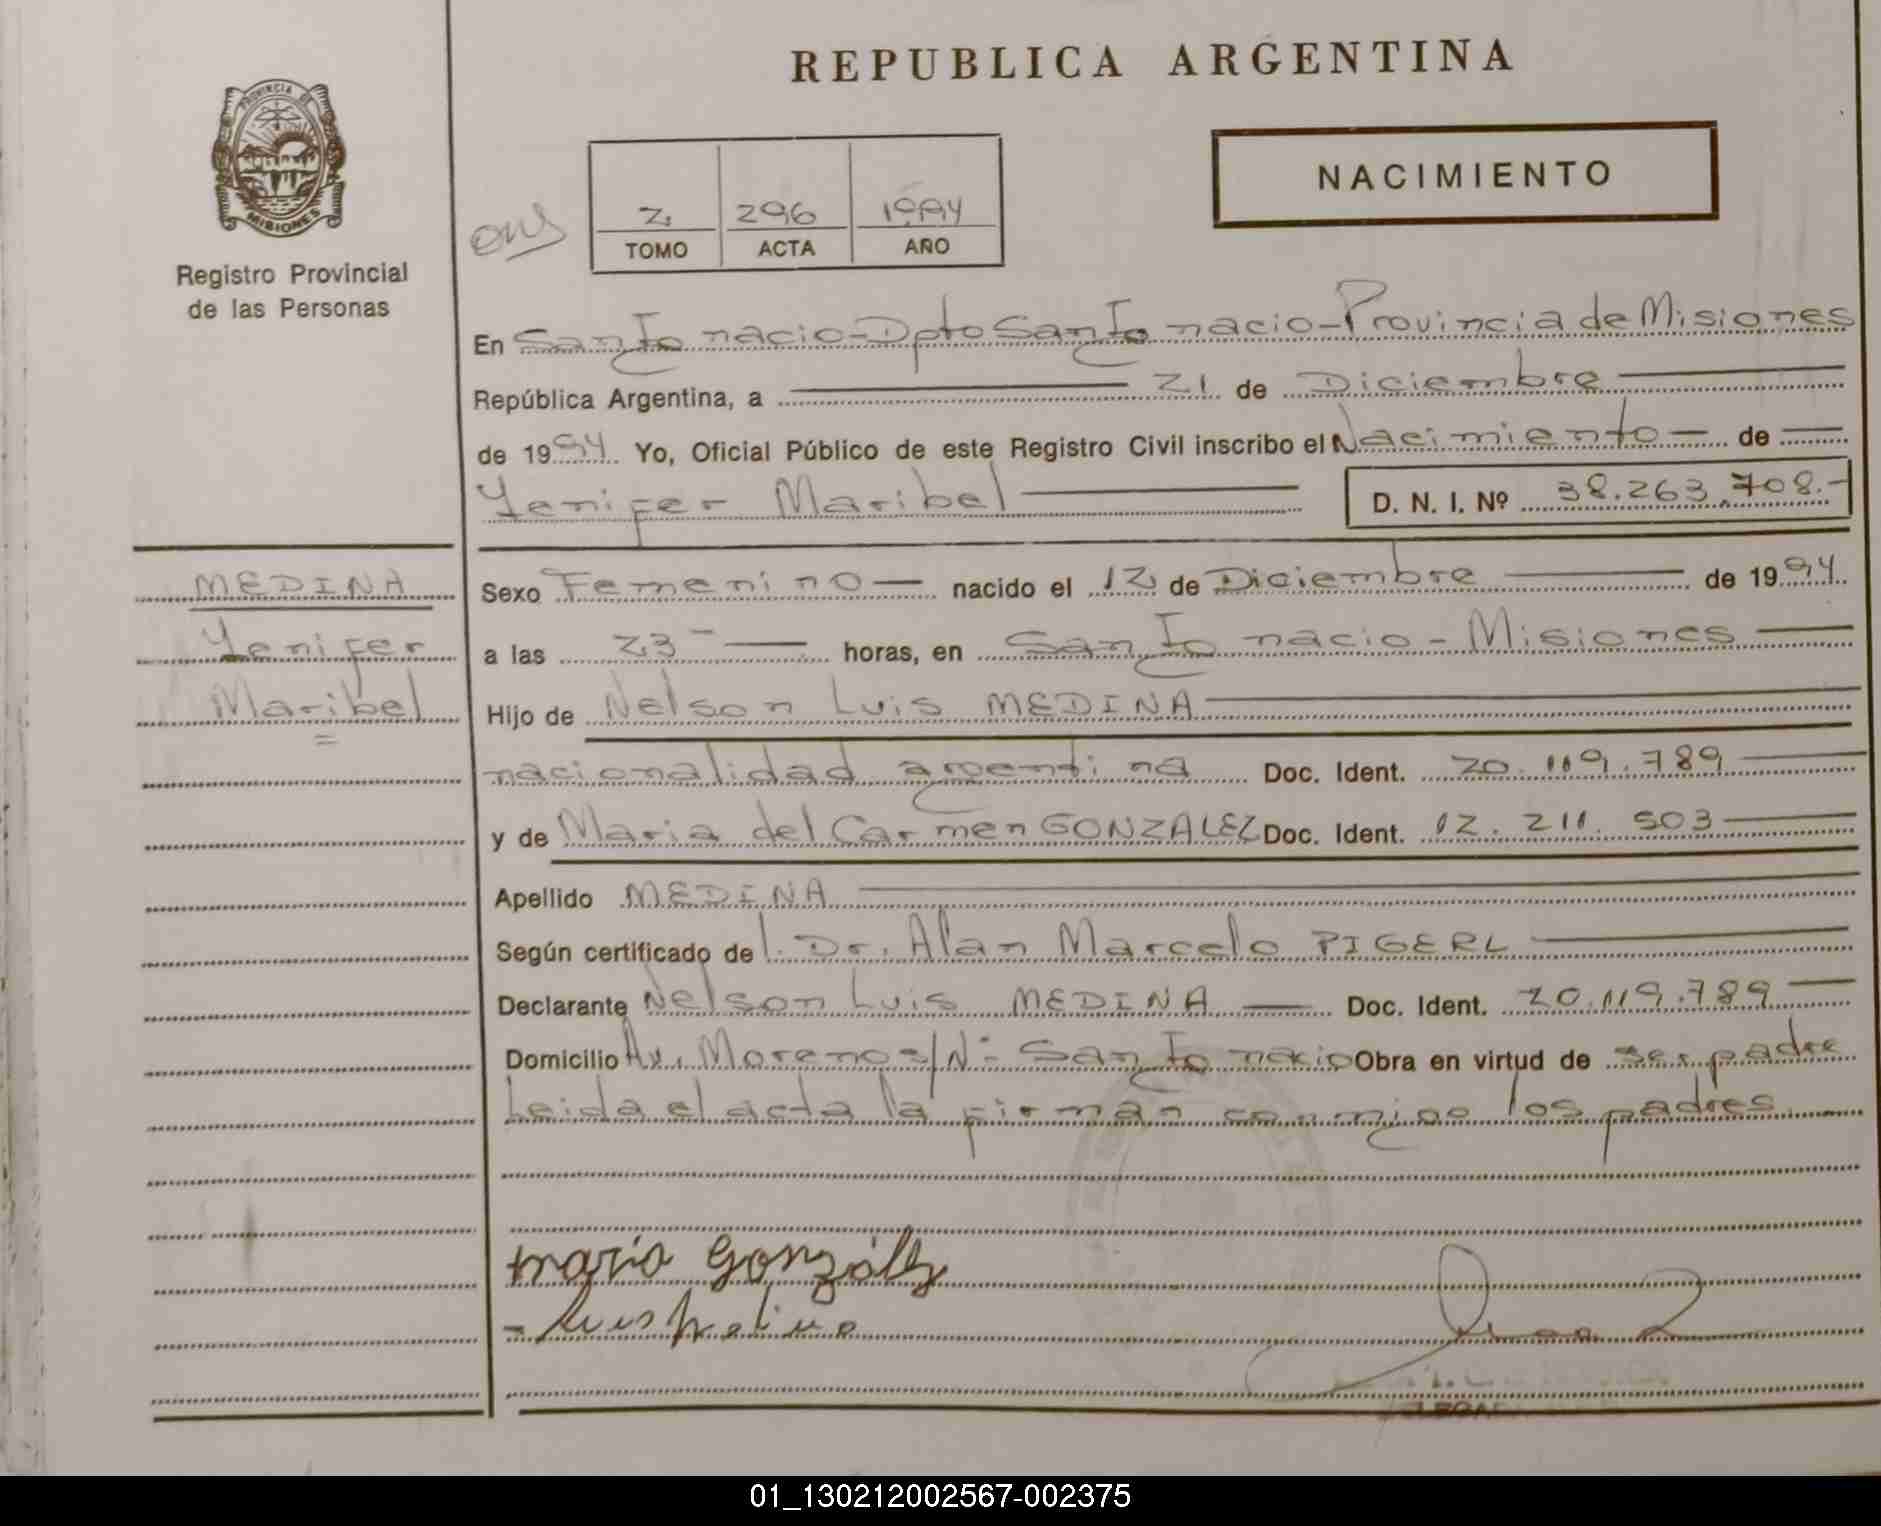 REPUBLICA ARGENTINA
PROVINCIA DE
MISIONES
Registro Provincial
de las Personas
NACIMIENTO
2 296 1994
TOMO ACTA AÑO
En San Ignacio - Dpto San Ignacio - Provincia de Misiones
República Argentina, a 21 de Diciembre
de 1994 Yo, Oficial Público de este Registro Civil inscribo el Nacimiento de
Yenifer Maribel D. N. I. Nº 38.263.708.-
MEDINA
Yenifer
Maribel
Sexo Femenino nacido el 12 de Diciembre de 1994
a las 23 horas, en San Ignacio - Misiones
Hijo de Nelson Luis MEDINA
nacionalidad argentina Doc. Ident. 20.119.789
y de Maria del Carmen GONZALEZ Doc. Ident. 12.211.503
Apellido MEDINA
Según certificado de l. Dr. Alan Marcelo PIGERL
Declarante Nelson Luis MEDINA Doc. Ident. 20.119.789
Domicilio Av. Moreno s/Nº San Ignacio Obra en virtud de ser padre
Leida el acta la firman conmigo los padres
maria González
Luis Medina
01_130212002567-002375